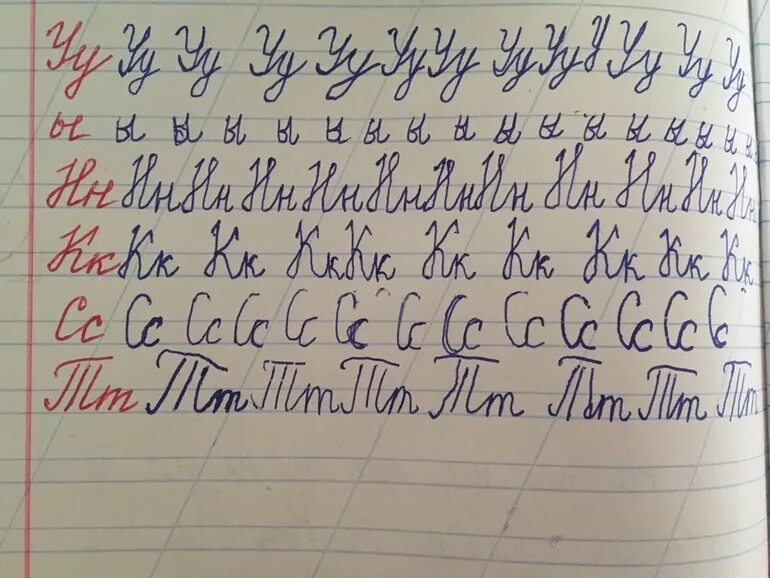 Уу Уу Уу Уу Уу Уу Уу Уу Уу У Уу Уу Уу
ы ы ы ы ы ы ы ы ы ы ы ы ы ы ы ы ы
Нн Нн Нн Нн Нн Нн Нн Нн Нн Нн Нн Нн
Кк Кк Кк Кк Кк Кк Кк Кк Кк Кк
Сс Сс Сс Сс Сс Сс Сс Сс Сс Сс Сс Сс Сс
Тт Тт Тт Тт Тт Тт Тт Тт